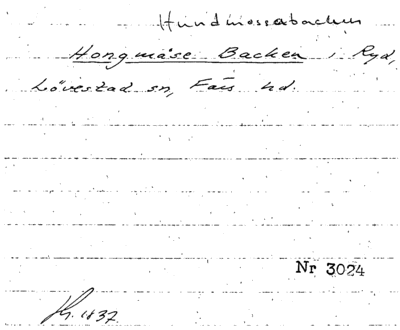 Hundmossabacken
Hongmåse Backen i Ryd,
Lövestad sn, Färs hd.
Nr 3024
1837.